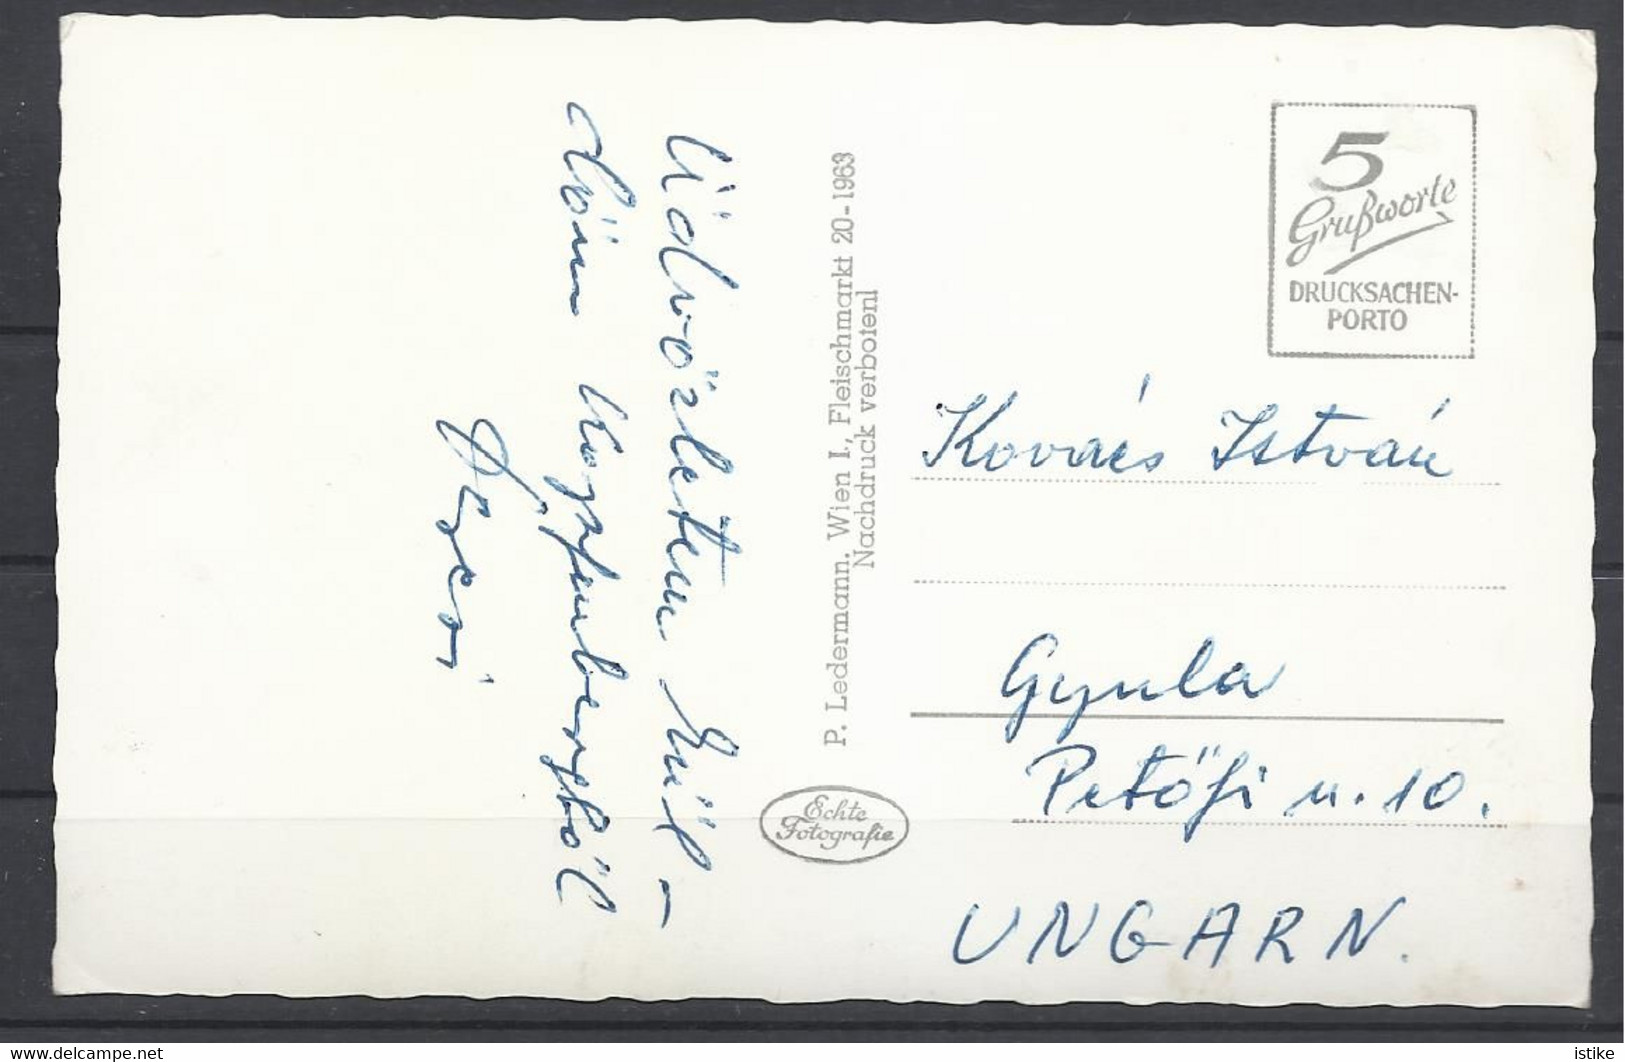 Üdvözletem kül-
döm Kapfenbergből
Dezső
P. Ledermann. Wien I., Fleischmarkt 20-1963
Nachdruck verboten!
Echte
Fotografie
5
Grußworte
DRUCKSACHEN-
PORTO
Kovács István
Gyula
Petőfi u. 10.
UNGARN.
www.delcampe.net
istike